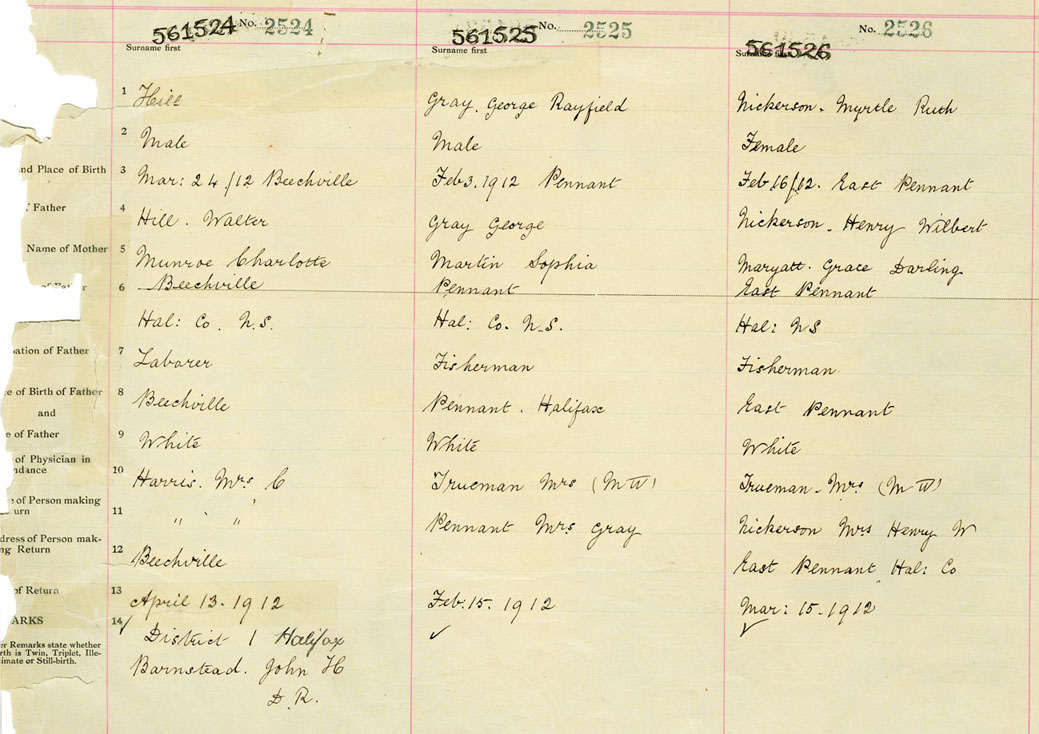 561524 No. 2524
Surname first
1 Hill
2 Male
nd Place of Birth 3 Mar: 24/12 Beechville
Father 4 Hill. Walter
Name of Mother 5 Munroe Charlotte
6 Beechville
Hal: Co. N.S.
ation of Father 7 Laborer
e of Birth of Father 8 Beechville
and
e of Father 9 White
of Physician in
ndance 10 Harris. Mrs C
of Person making
urn 11 " " "
dress of Person mak-
ng Return 12 Beechville
of Return 13 April 13. 1912
ARKS 14 District 1 Halifax
er Remarks state whether
rth is Twin, Triplet, Ille-
timate or Still-birth.
Barnstead. John H
D.R.
561525 No. 2525
Surname first
Gray. George Rayfield
Male
Feb 3. 1912 Pennant
Gray George
Martin Sophia
Pennant
Hal: Co. N.S.
Fisherman
Pennant. Halifax
White
Trueman Mrs (M W)
Pennant Mrs Gray
Feb. 15. 1912
✓
561526 No. 2526
Nickerson. Myrtle Ruth
Female
Feb 16/12. East Pennant
Nickerson. Henry Wilbert
Maryatt. Grace Darling
East Pennant
Hal: NS
Fisherman
East Pennant
White
Trueman. Mrs (M W)
Nickerson Mrs Henry W
East Pennant Hal: Co
Mar: 15. 1912
✓